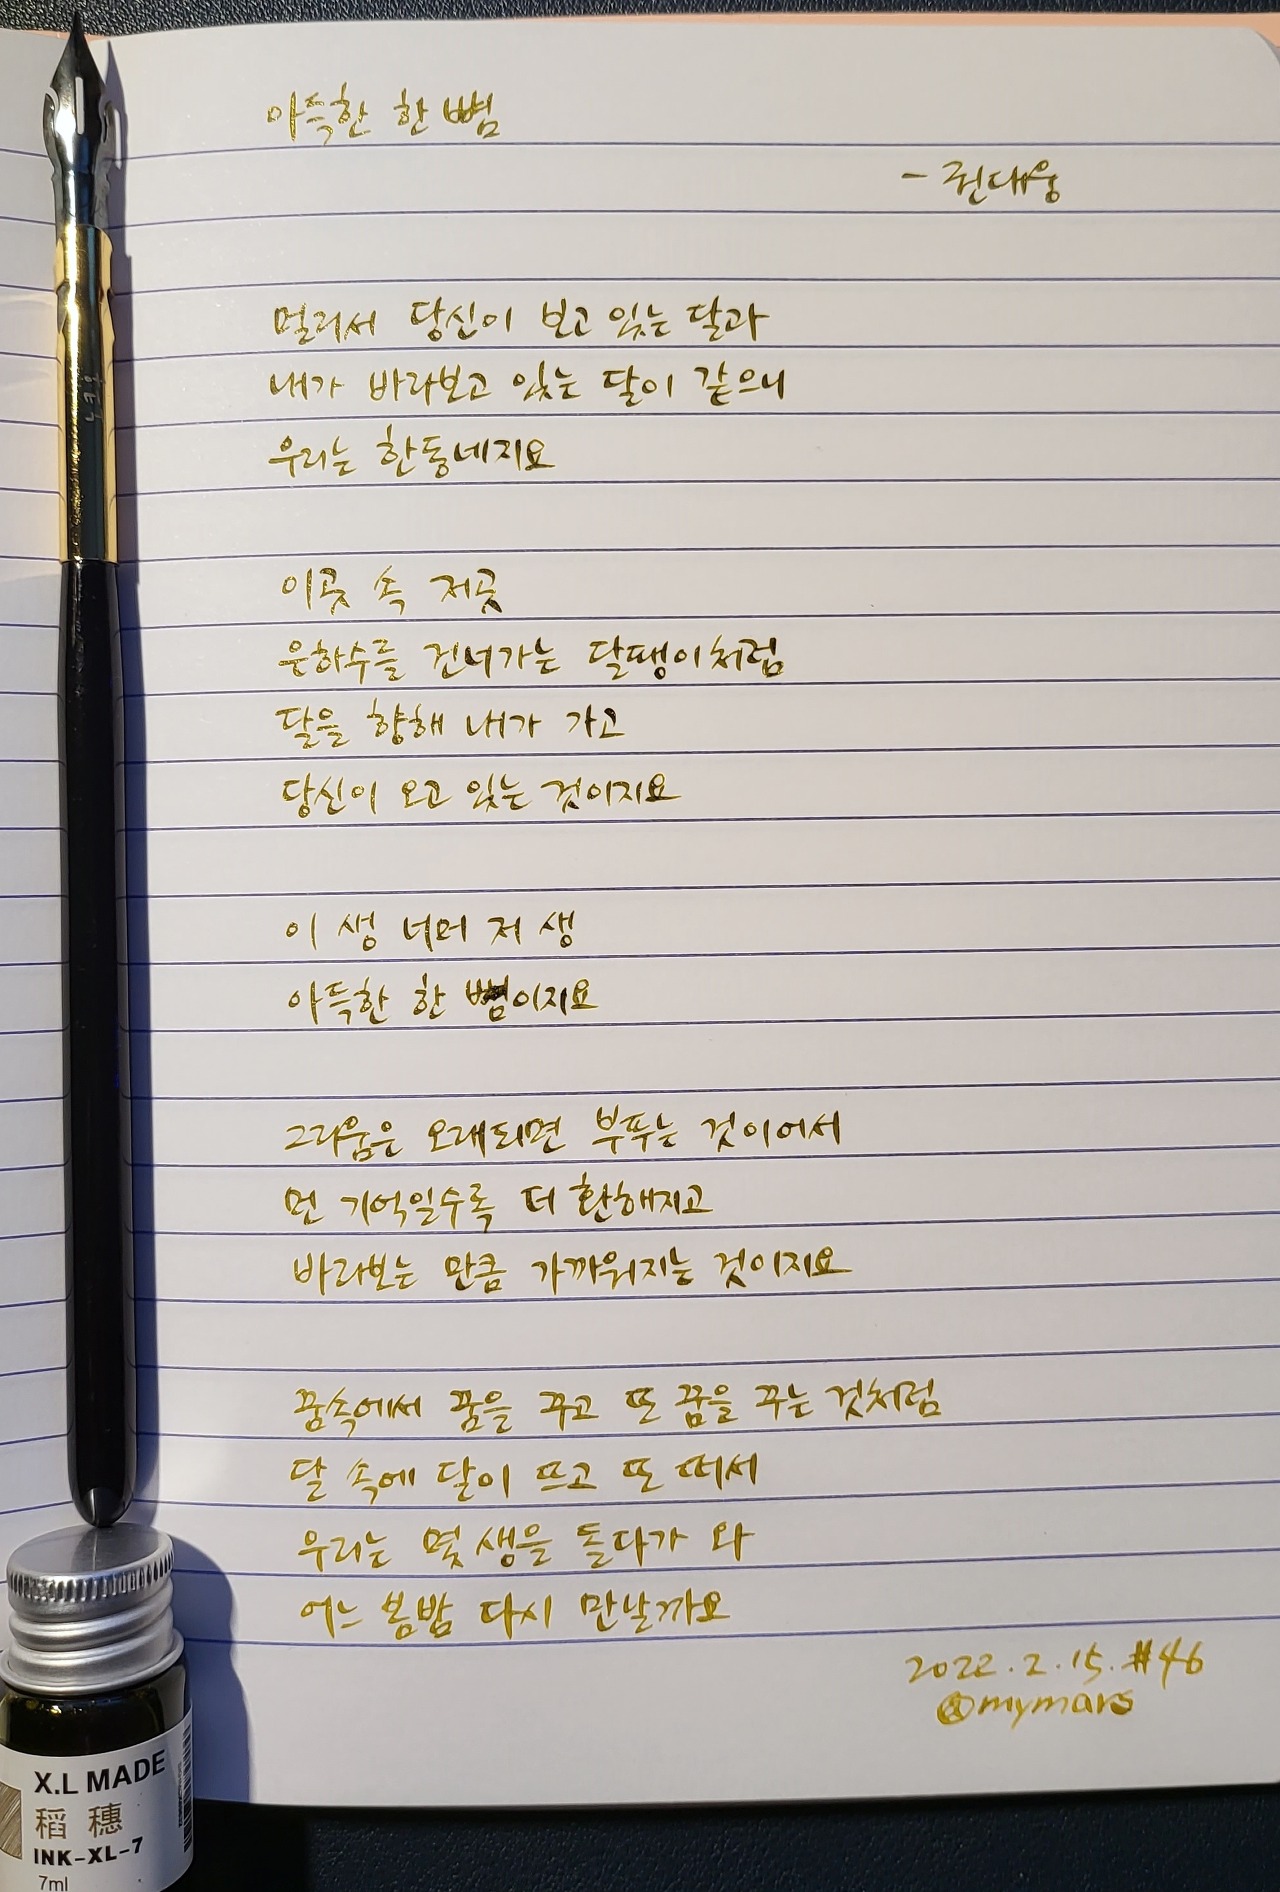 아득한 한 뼘
- 권대웅
멀리서 당신이 보고 있는 달과
내가 바라보고 있는 달이 같으니
우리는 한동네지요
이곳 속 저곳
은하수를 건너가는 달팽이처럼
달을 향해 내가 가고
당신이 오고 있는 것이지요
이 생 너머 저 생
아득한 한 뼘이지요
그리움은 오래되면 부푸는 것이어서
먼 기억일수록 더 환해지고
바라보는 만큼 가까워지는 것이지요
꿈속에서 꿈을 꾸고 또 꿈을 꾸는 것처럼
달 속에 달이 뜨고 또 떠서
우리는 몇 생을 돌다가 와
어느 봄밤 다시 만날까요
2022.2.15. #46
@mymars
X.L MADE
稻穗
INK-XL-7
7ml